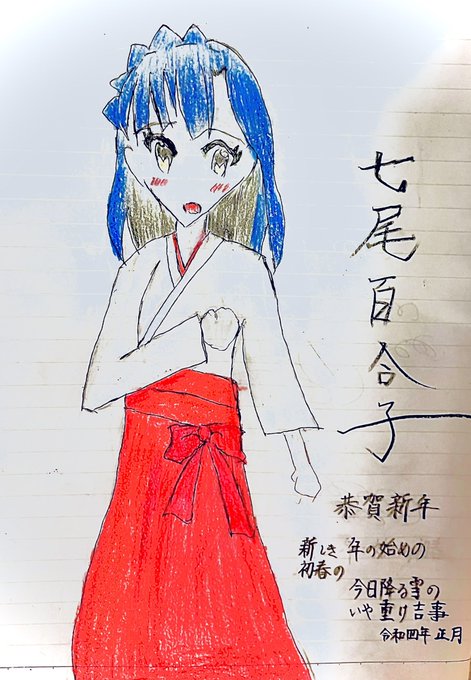 七尾百合子
恭賀新年
新しき 年の始めの
初春の
今日降る雪の
いや重け吉事
令和四年 正月